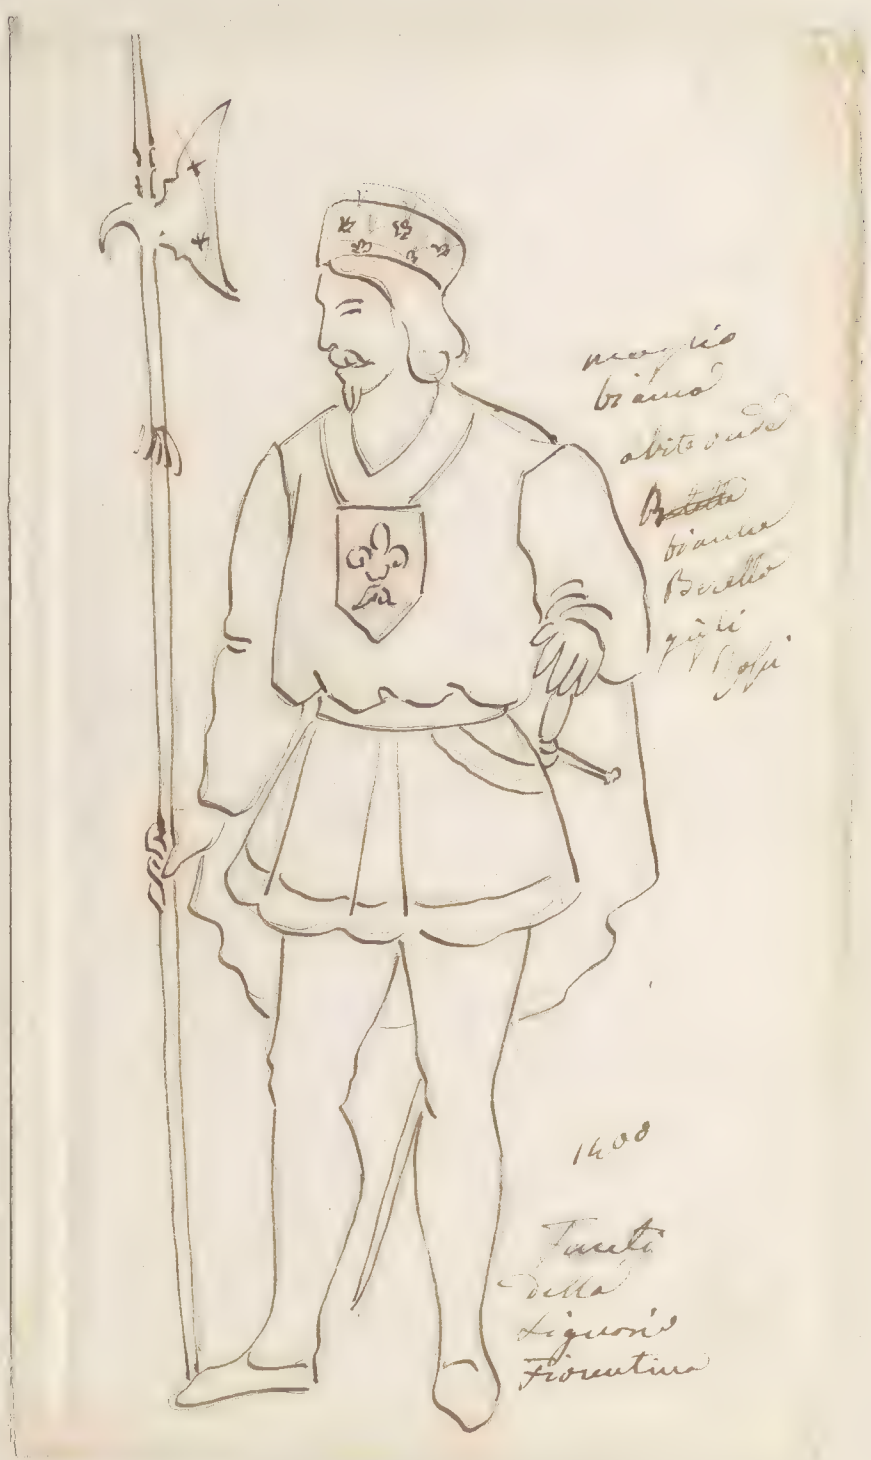 maglio
bianco
abito verde
bianca
Beretto
gigli
1400
Fanti
della
Signoria
Fiorentina